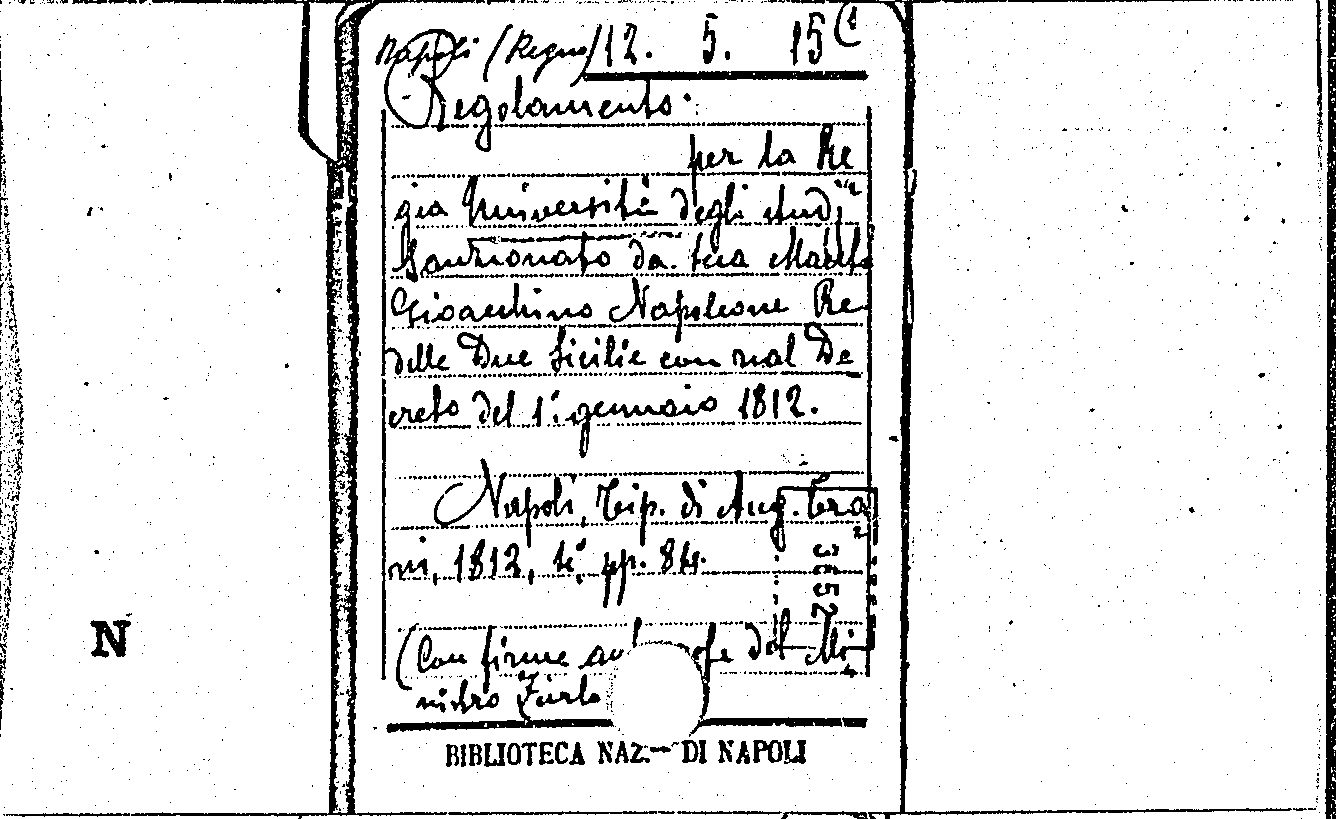 Napoli (Regno) 12. 5. 15 (1
Regolamento.
per la Re
gia Università degli studi
Sanzionato da sua Maestà
Gioacchino Napoleone Re
delle Due Sicilie con real De
creto del 1° gennaio 1812.
Napoli, Tip. di Ang. Tra
ni, 1812, 4°, pp. 84.
3652
(Con firme del Mi
nistro Zurlo
N
BIBLIOTECA NAZ. DI NAPOLI